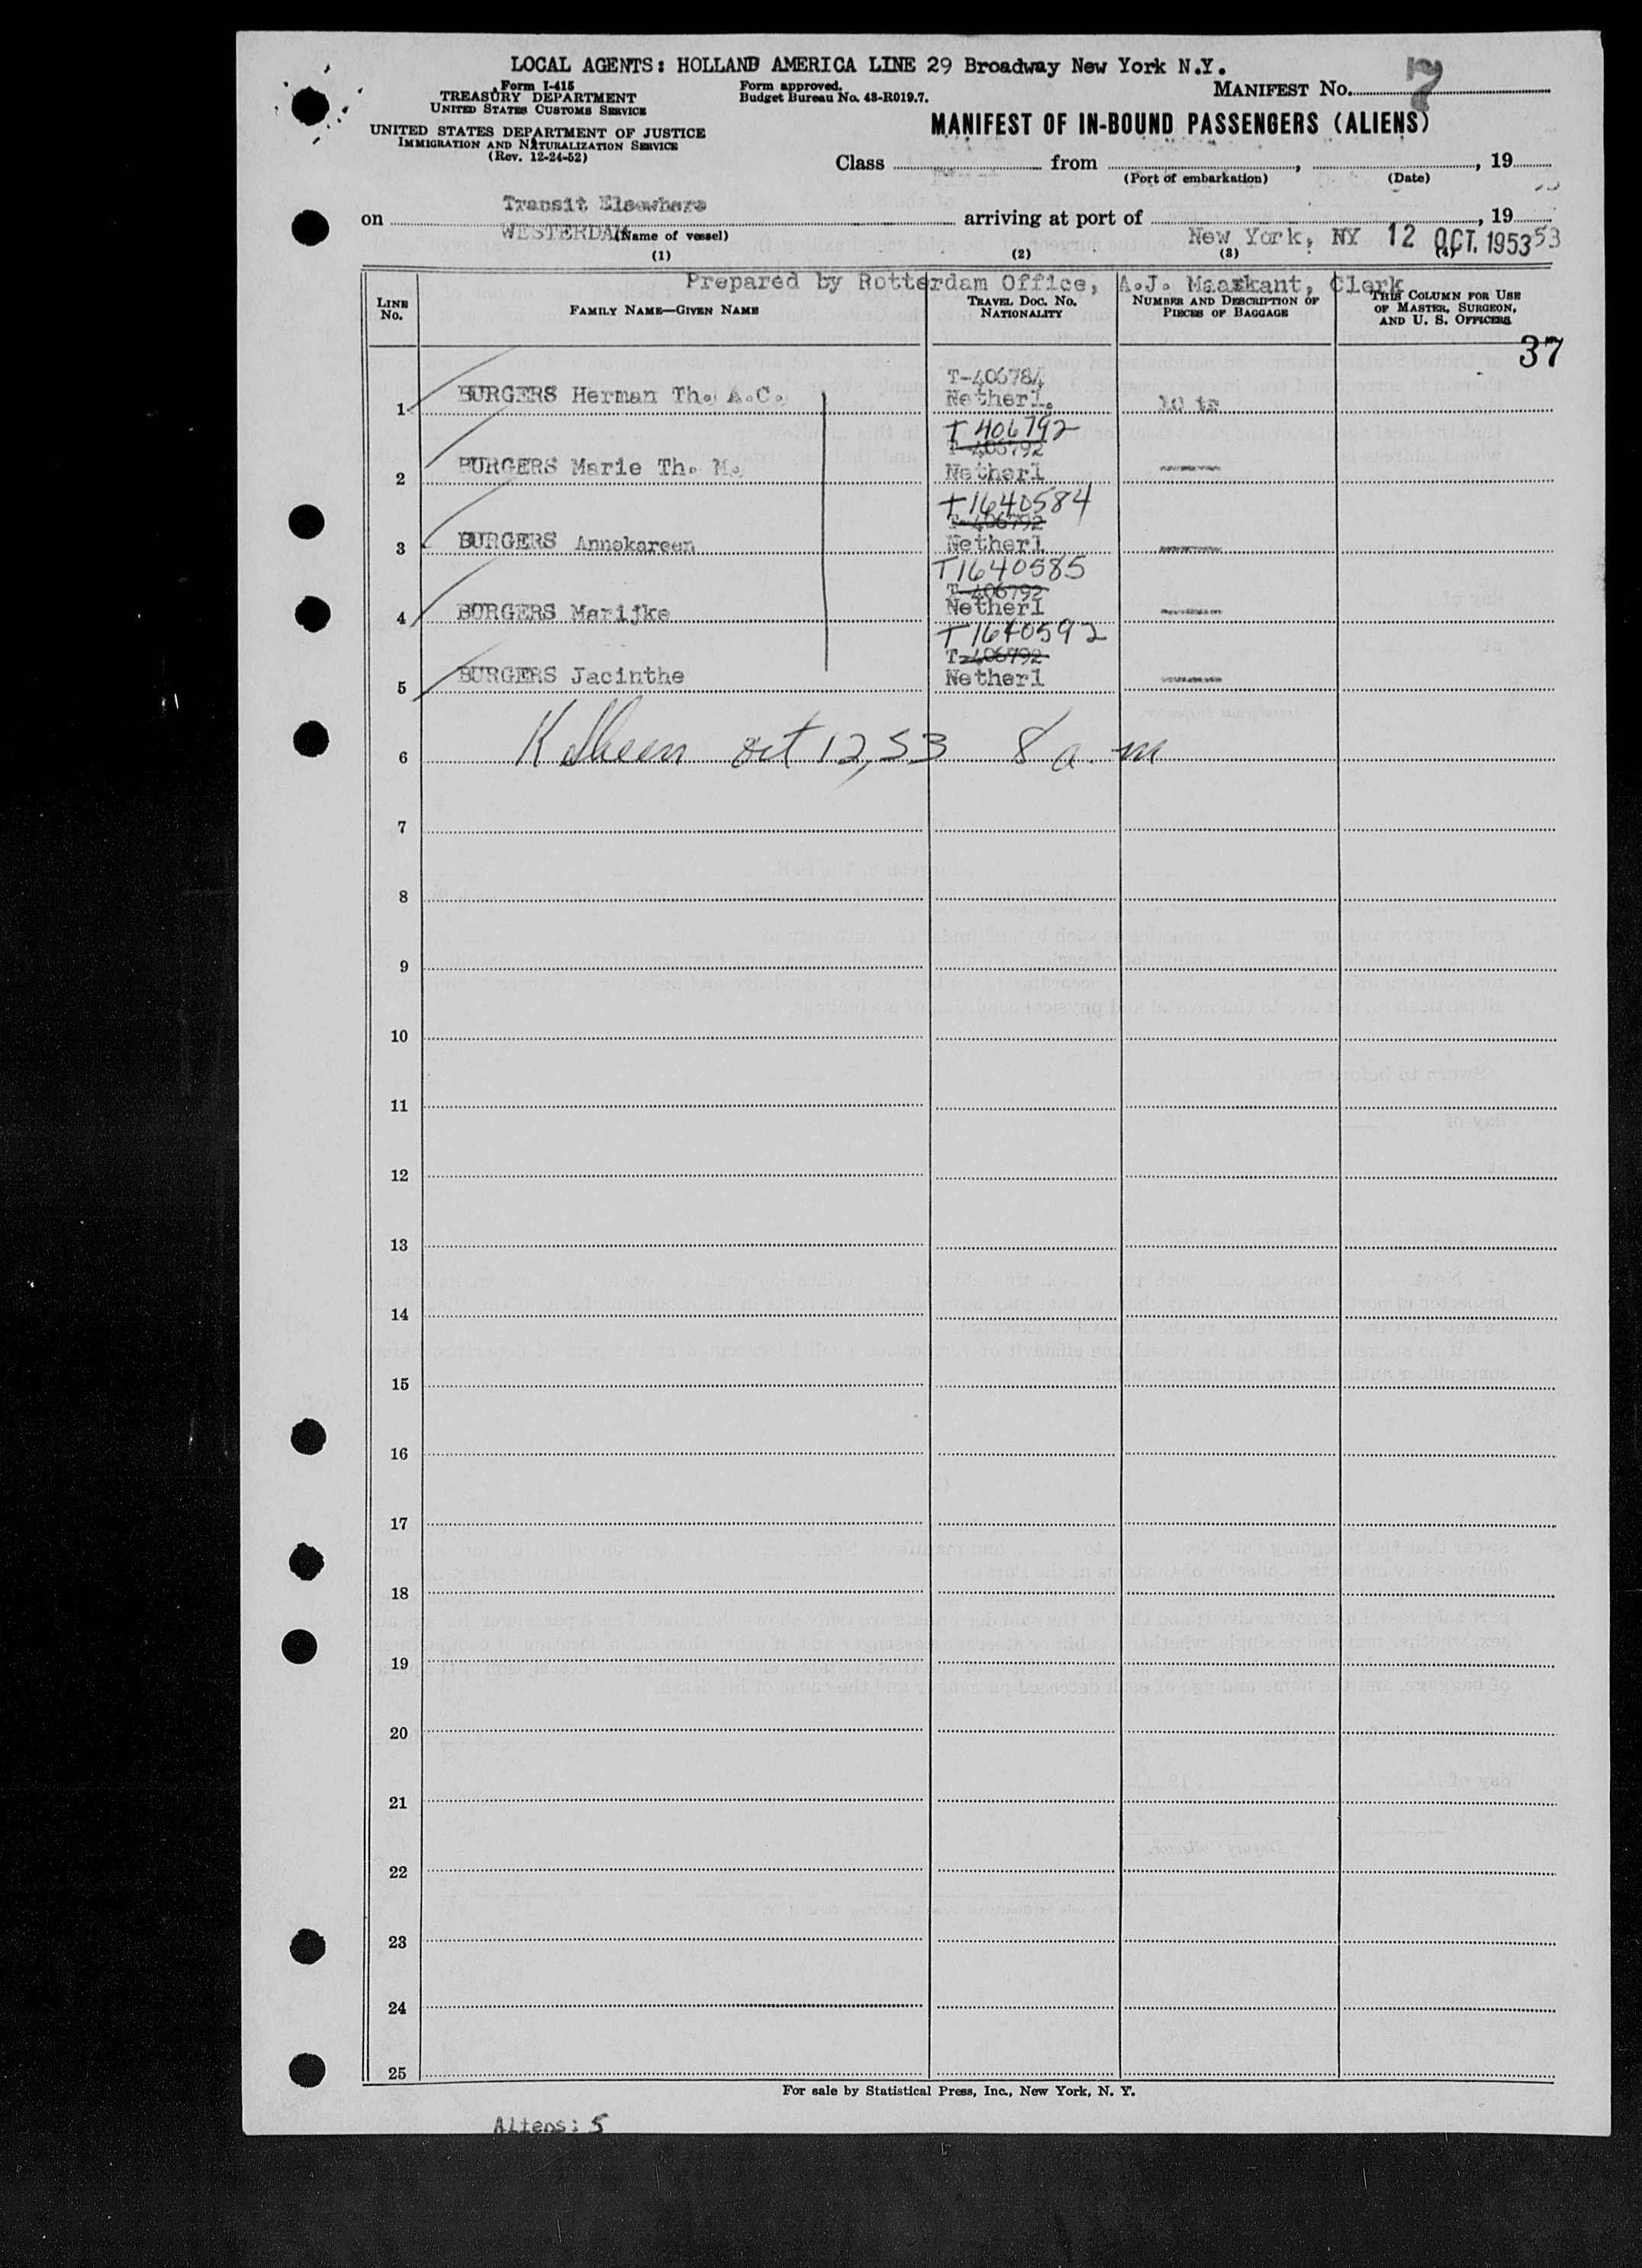 LOCAL AGENTS: HOLLAND AMERICA LINE 29 Broadway New York N.Y.
Form I-415
TREASURY DEPARTMENT
UNITED STATES CUSTOMS SERVICE
UNITED STATES DEPARTMENT OF JUSTICE
IMMIGRATION AND NATURALIZATION SERVICE
(Rev. 12-24-52)
Form approved.
Budget Bureau No. 43-R019.7.
MANIFEST No. 7
MANIFEST OF IN-BOUND PASSENGERS (ALIENS)
Class from , , 19
(Port of embarkation) (Date)
Transit Elsewhere
on arriving at port of , 19
WESTERDAM (Name of vessel) New York, NY 12 OCT. 1953 53
(1) (2) (3) (4)
Prepared by Rotterdam Office, A.J. Maaskant, Clerk
LINE No.
FAMILY NAME—GIVEN NAME
TRAVEL DOC. No. NATIONALITY
NUMBER AND DESCRIPTION OF PIECES OF BAGGAGE
THIS COLUMN FOR USE OF MASTER, SURGEON, AND U. S. OFFICERS
37
T-406784
1 BURGERS Herman Th. A.C. Netherl. 10 tr
T 406792
2 BURGERS Marie Th. M. Netherl
T1640584
T-406792
3 BURGERS Annekareen Netherl
T1640585
T-406792
4 BURGERS Marijke Netherl
T1640592
T-406792
5 BURGERS Jacinthe Netherl
6 oct 12, 53 8 a.m
7
8
9
10
11
12
13
14
15
16
17
18
19
20
21
22
23
24
25
For sale by Statistical Press, Inc., New York, N. Y.
Aliens: 5